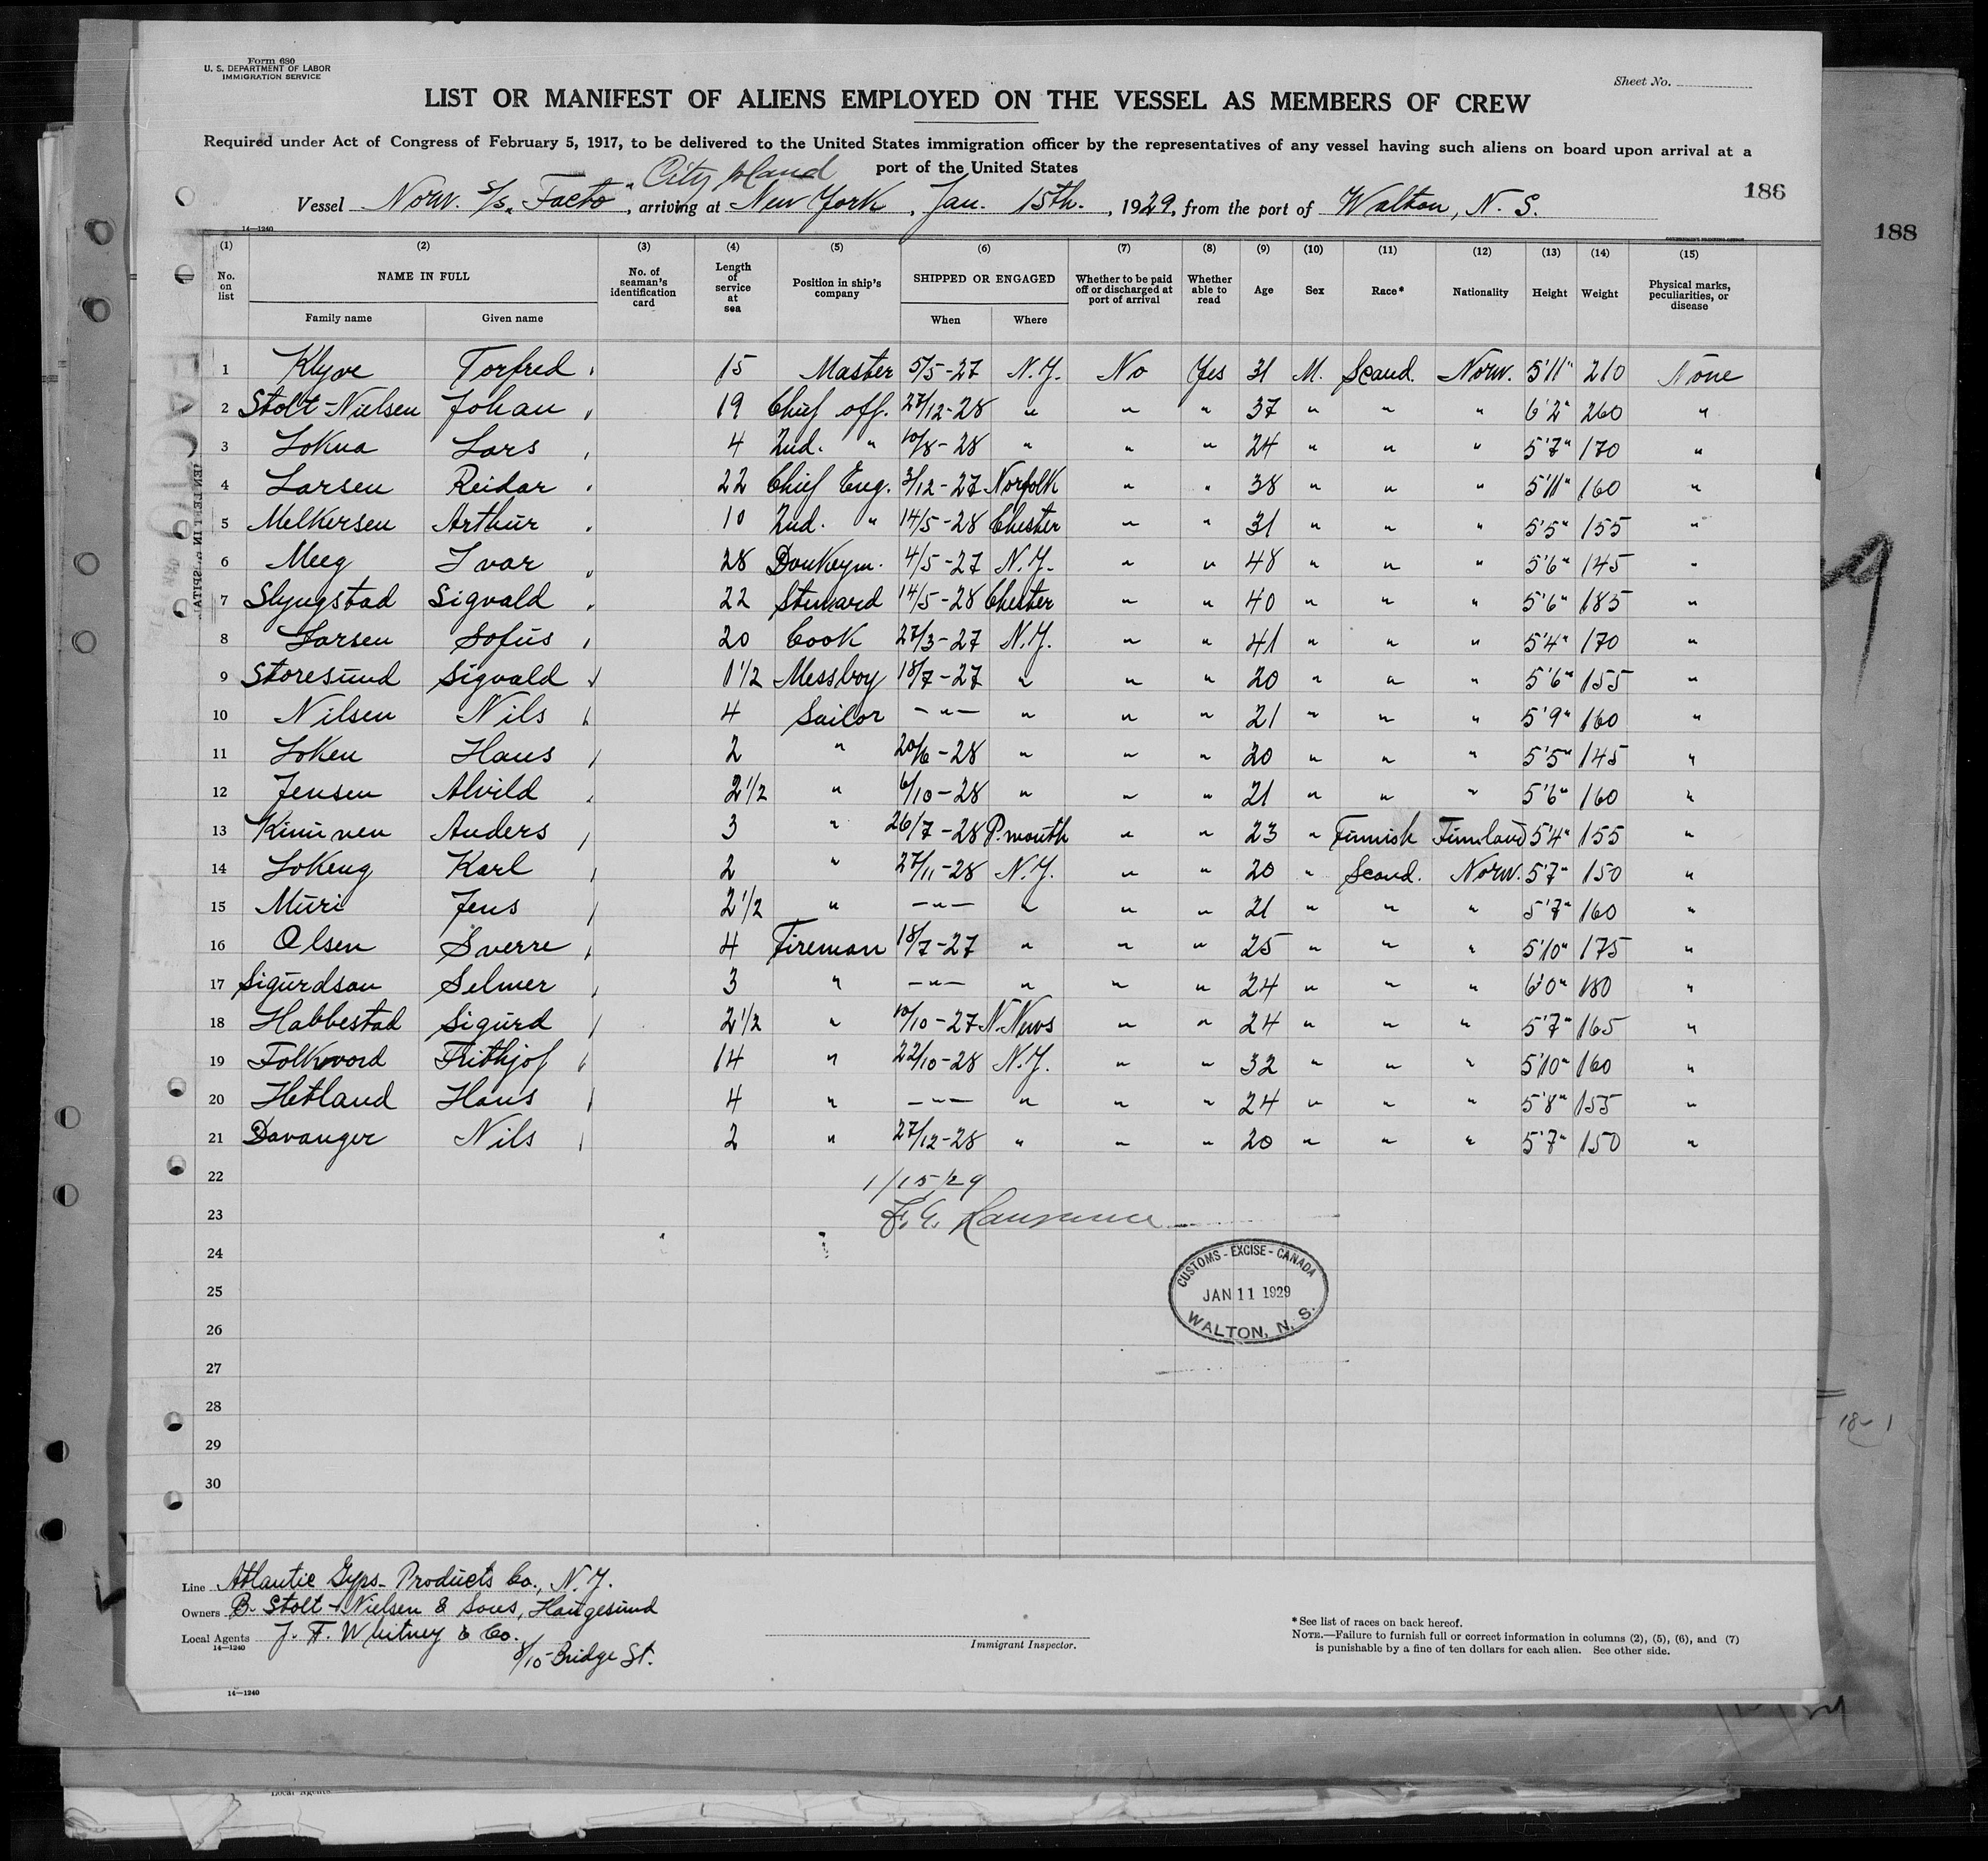 Form 680
U. S. DEPARTMENT OF LABOR
IMMIGRATION SERVICE
Sheet No.
LIST OR MANIFEST OF ALIENS EMPLOYED ON THE VESSEL AS MEMBERS OF CREW
Required under Act of Congress of February 5, 1917, to be delivered to the United States immigration officer by the representatives of any vessel having such aliens on board upon arrival at a
port of the United States
City Island
186
188
Vessel Norw. S/S. "Facto", arriving at New York, Jan. 15th., 1929, from the port of Walton, N. S.
14—1240
(1) (2) (3) (4) (5) (6) (7) (8) (9) (10) (11) (12) (13) (14) (15)
No. on list NAME IN FULL Family name Given name No. of seaman's identification card Length of service at sea Position in ship's company SHIPPED OR ENGAGED When Where Whether to be paid off or discharged at port of arrival Whether able to read Age Sex Race* Nationality Height Weight Physical marks, peculiarities, or disease
1 Klyve Torfred 15 Master 5/5-27 N.Y. No Yes 31 M. Scand. Norw. 5'11" 210 None
2 Stolt-Nielsen Johan 19 Chief off. 27/12-28 " " " 37 " " " 6'2" 260 "
3 Lokna Lars 4 2nd. " 10/8-28 " " " 24 " " " 5'7" 170 "
4 Larsen Reidar 22 Chief Eng. 3/12-27 Norfolk " " 38 " " " 5'11" 160 "
5 Melkersen Arthur 10 2nd. " 14/5-28 Chester " " 31 " " " 5'5" 155 "
6 Meeg Ivar 28 Donkeym. 4/5-27 N.Y. " " 48 " " " 5'6" 145 "
7 Slyngstad Sigvald 22 Steward 14/5-28 Chester " " 40 " " " 5'6" 185 "
8 Larsen Sofus 20 Cook 27/3-27 N.Y. " " 41 " " " 5'4" 170 "
9 Storesund Sigvald 1 1/2 Messboy 18/7-27 " " " 20 " " " 5'6" 155 "
10 Nilsen Nils 4 Sailor —"— " " " 21 " " " 5'9" 160 "
11 Loken Hans 2 " 20/6-28 " " " 20 " " " 5'5" 145 "
12 Jensen Alvild 2 1/2 " 6/10-28 " " " 21 " " " 5'6" 160 "
13 Kinunen Anders 3 " 26/7-28 P.mouth " " 23 " Finnish Finnland 5'4" 155 "
14 Lokeng Karl 2 " 27/11-28 N.Y. " " 20 " Scand. Norw. 5'7" 150 "
15 Muri Jens 2 1/2 " —"— " " " 21 " " " 5'7" 160 "
16 Olsen Sverre 4 Fireman 18/7-27 " " " 25 " " " 5'10" 175 "
17 Sigurdson Selmer 3 " —"— " " " 24 " " " 6'0" 180 "
18 Habbestad Sigurd 2 1/2 " 10/10-27 N.News " " 24 " " " 5'7" 165 "
19 Folkvord Frithjof 14 " 22/10-28 N.Y. " " 32 " " " 5'10" 160 "
20 Hetland Hans 4 " —"— " " " 24 " " " 5'8" 155 "
21 Davanger Nils 2 " 27/12-28 " " " 20 " " " 5'7" 150 "
22 1/15/29
23 F. E. Laurence
24
25
26
27
28
29
30
CUSTOMS - EXCISE - CANADA
JAN 11 1929
WALTON, N. S.
18-1
Line Atlantic Gyps. Products Co., N.Y.
Owners B. Stolt-Nielsen & Sons, Haugesund
Local Agents J. F. Whitney & Co.
14—1240
8/10 Bridge St.
Immigrant Inspector.
*See list of races on back hereof.
NOTE.—Failure to furnish full or correct information in columns (2), (5), (6), and (7)
is punishable by a fine of ten dollars for each alien. See other side.
14—1240
Local Agents